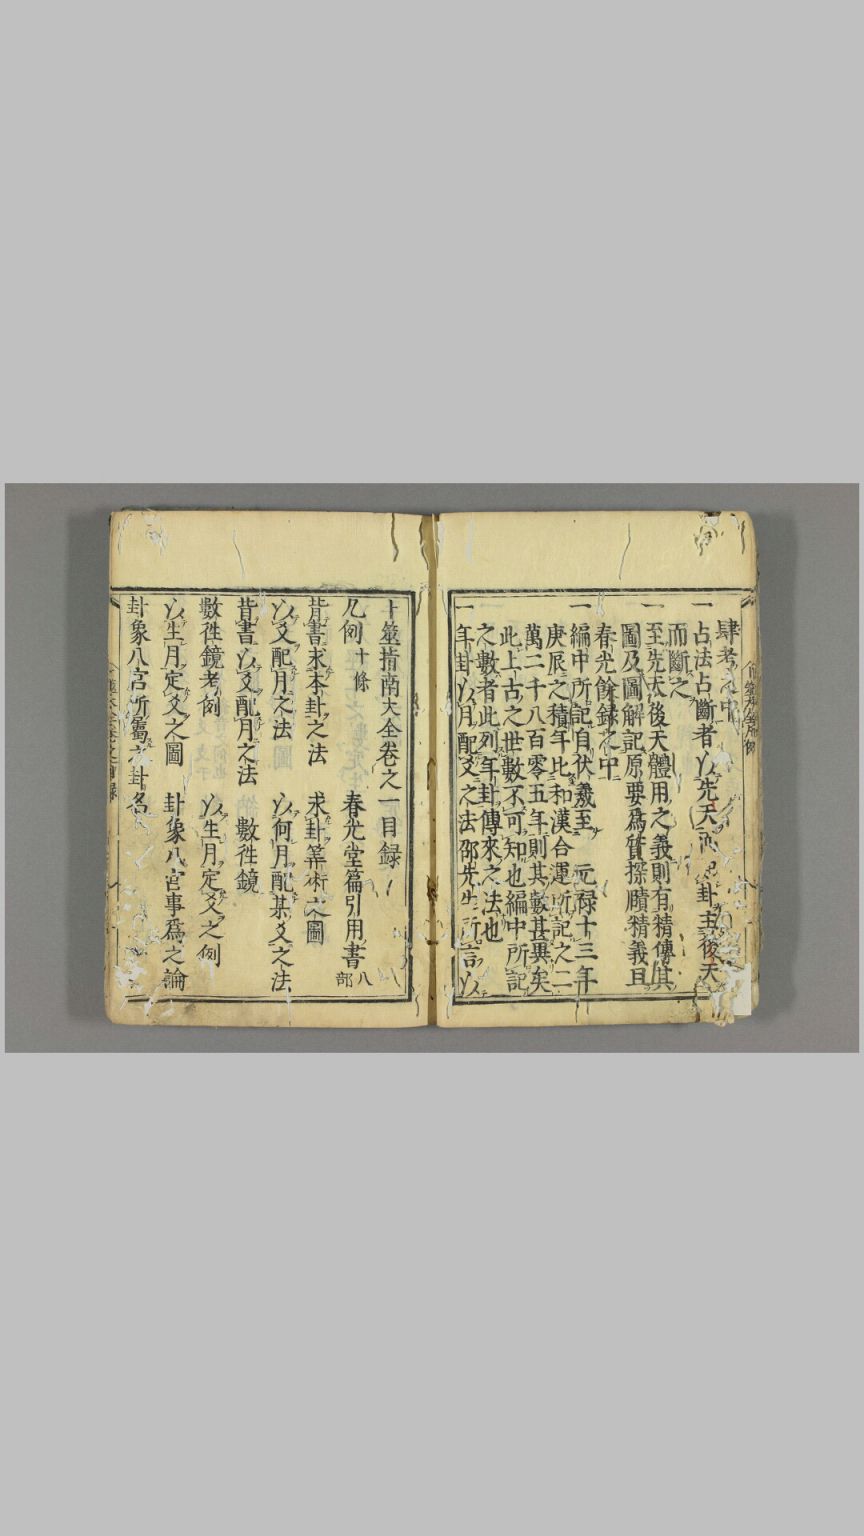 肆考之中
一占法占斷者以先天 卦主後天
而斷之
一至先天後天體用之義則有精傳其
圖及圖解記原要爲質探賾精義且
春光餘録之中
一編中所記自伏羲至 元禄十三年
庚辰之積年比和漢合運所記之二
萬二千八百零五年則其數甚異矣
此上古之世數不可知也編中所記
之數者此列年卦傳來之法也
一年卦以月配爻之法邵先生所言以
卜筮指南大全卷之一目録
凡例 十條 春光堂篇引用書 八部
背書求本卦之法 求卦筭術之圖
以爻配月之法 以何月配某爻之法
昔書以爻配月之法 數徃鏡
數徃鏡考例 以生月定爻之例
以生月定爻之圖 卦象八宮事爲之論
卦象八宮所屬之卦名